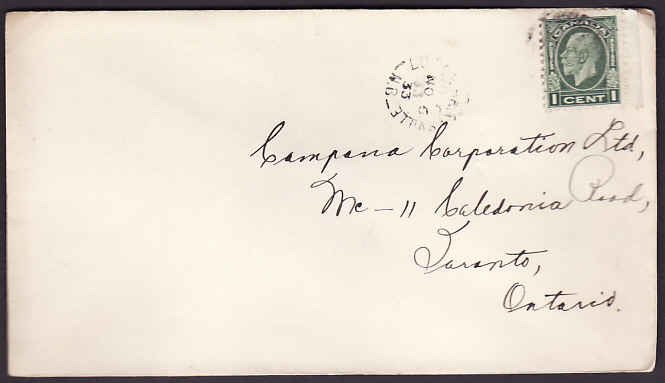 CANADA
1 CENT 1
NO 6
33
N.B.
Campana Corporation Ltd,
Mc - 11 Caledonia Road,
Toronto,
Ontario.